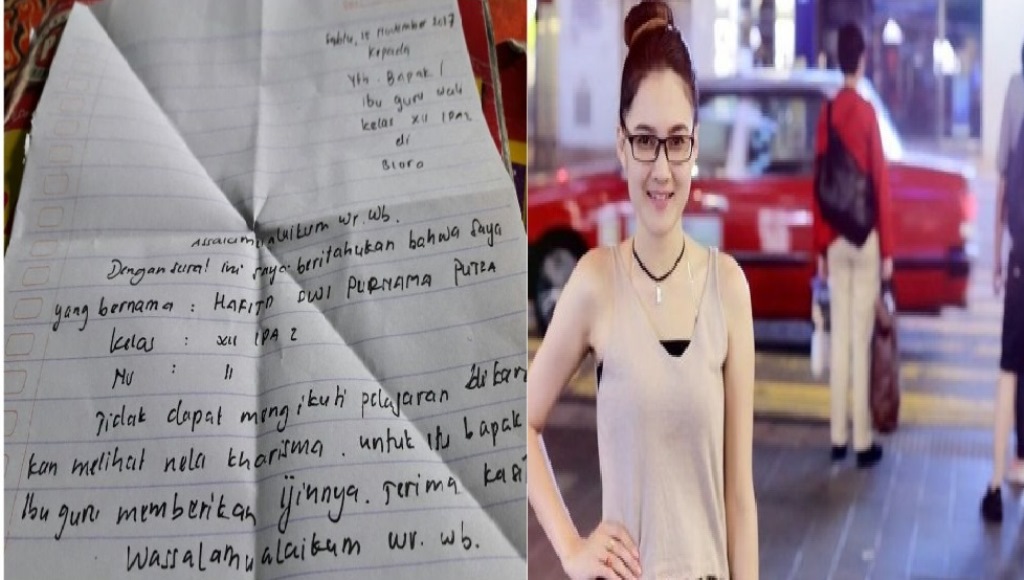 Sabtu, 18 November 2017
Kepada
Yth. Bapak /
ibu guru wali
kelas XII IPA2
di
Blora
Assalamualaikum wr. wb.
Dengan surat ini saya beritahukan bahwa saya
yang bernama : HAFITD DWI PURNAMA PUTRA
kelas : XII IPA 2
NU : 11
Tidak dapat mengikuti pelajaran dikare
kan melihat nela kharisma. untuk itu bapak
ibu guru memberikan ijinnya. Terima kasi
Wassalamualaikum wr. wb.